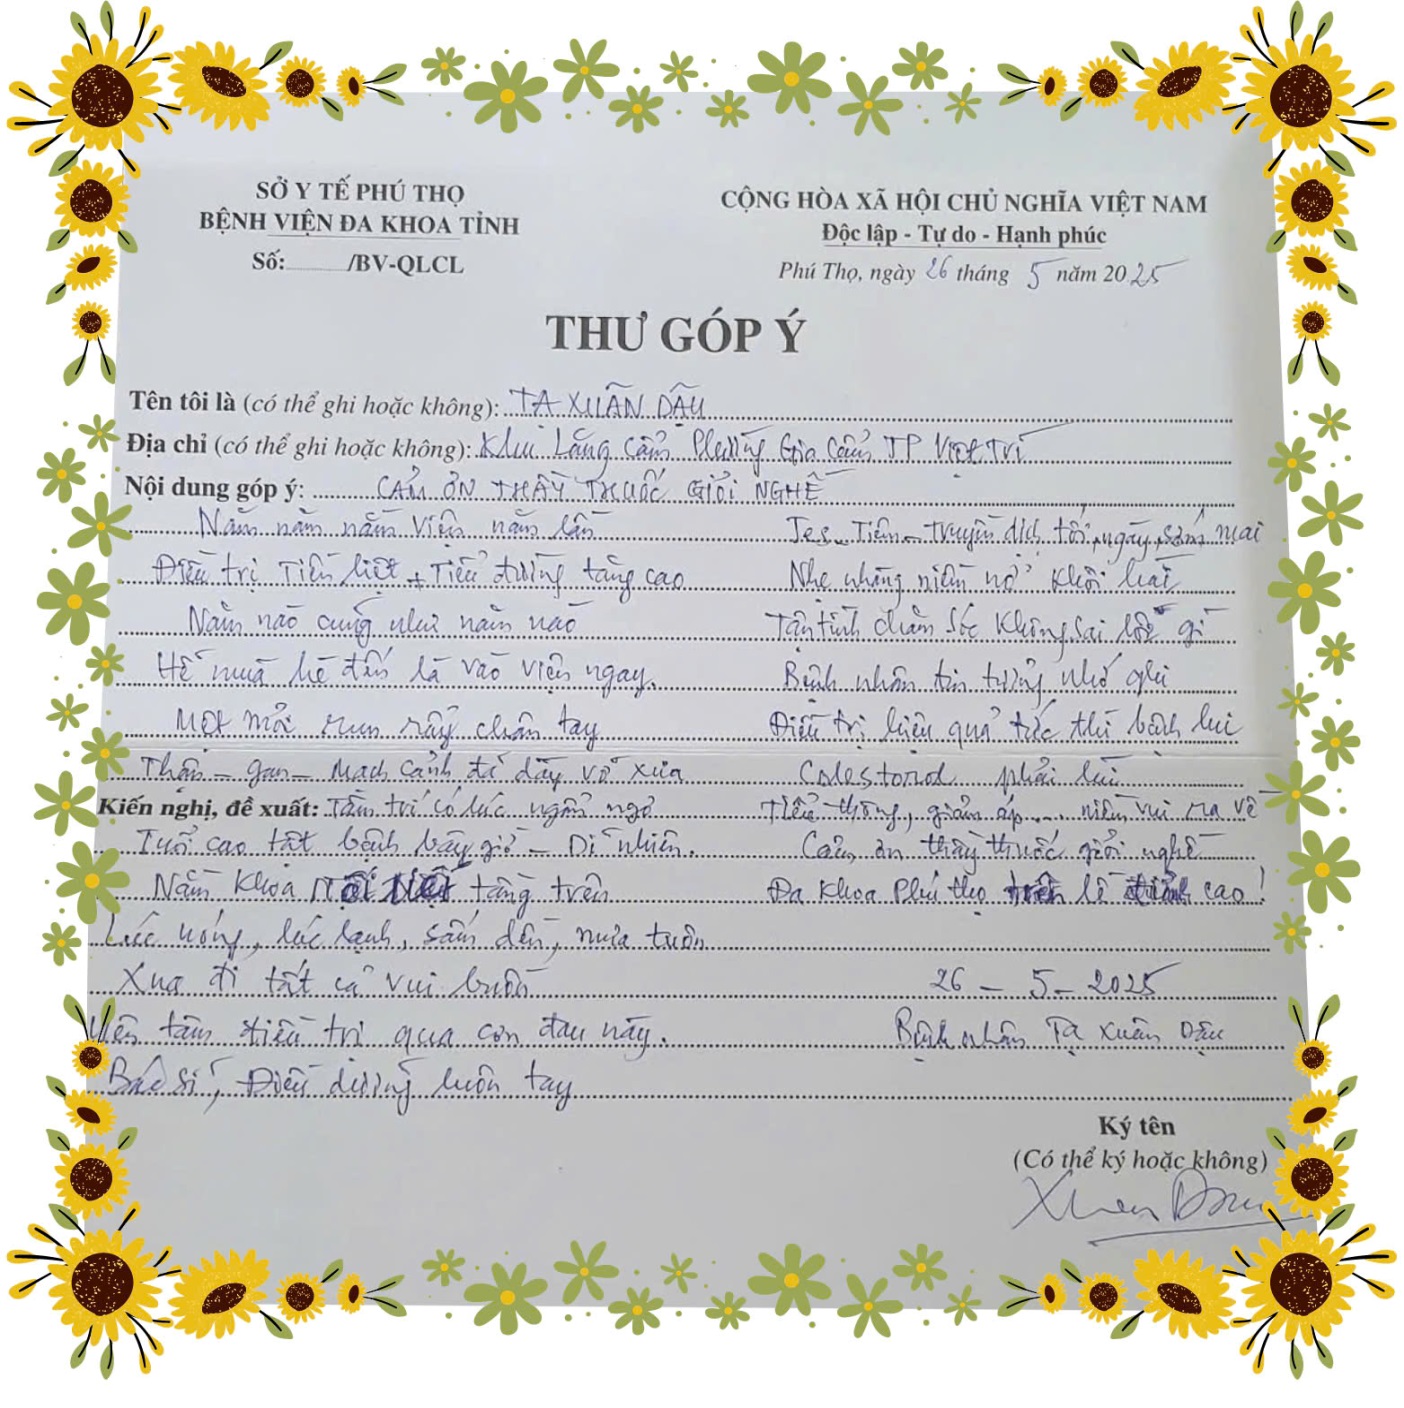 SỞ Y TẾ PHÚ THỌ
BỆNH VIỆN ĐA KHOA TỈNH
Số:............/BV-QLCL
CỘNG HÒA XÃ HỘI CHỦ NGHĨA VIỆT NAM
Độc lập - Tự do - Hạnh phúc
Phú Thọ, ngày 26 tháng 5 năm 2025
THƯ GÓP Ý
Tên tôi là (có thể ghi hoặc không): TẠ XUÂN DẬU
Địa chỉ (có thể ghi hoặc không): Khu Lăng Cẩm Phường Gia Cẩm TP Việt Trì
Nội dung góp ý: CẢM ƠN THẦY THUỐC GIỎI NGHỀ
Năm năm nằm viện năm lần
Điều trị Tiền liệt + Tiểu đường tăng cao
Năm nào cũng như năm nào
Hễ mùa hè đến là vào viện ngay.
Mệt mỏi run rẩy chân tay
Thận - gan - Mạch cảnh đã dầy vữ xưa
Kiến nghị, đề xuất: Tâm trí có lúc ngẩn ngơ
Tuổi cao tất bệnh bây giờ - Dĩ nhiên.
Nằm khoa Nội tầng trên
Lúc nóng, lúc lạnh, sấm dền, mưa tuôn
Xua đi tất cả vui buồn
Yên tâm điều trị qua cơn đau này.
Bác sĩ, Điều dưỡng luôn tay
Tes - Tiêm - truyền dịch tối, ngày, sớm mai
Nhẹ nhàng niềm nở khôi hài
Tận tình chăm sóc không sai lỗi gì
Bệnh nhân tin tưởng nhớ ghi
Điều trị hiệu quả tức thì bệnh lui
Colestorol phải lùi
Tiểu thông, giảm áp.... niềm vui ra về
Cảm ơn thầy thuốc giỏi nghề
Đa khoa Phú thọ lề cao!
26 - 5 - 2025
Bệnh nhân Tạ Xuân Dậu
Ký tên
(Có thể ký hoặc không)